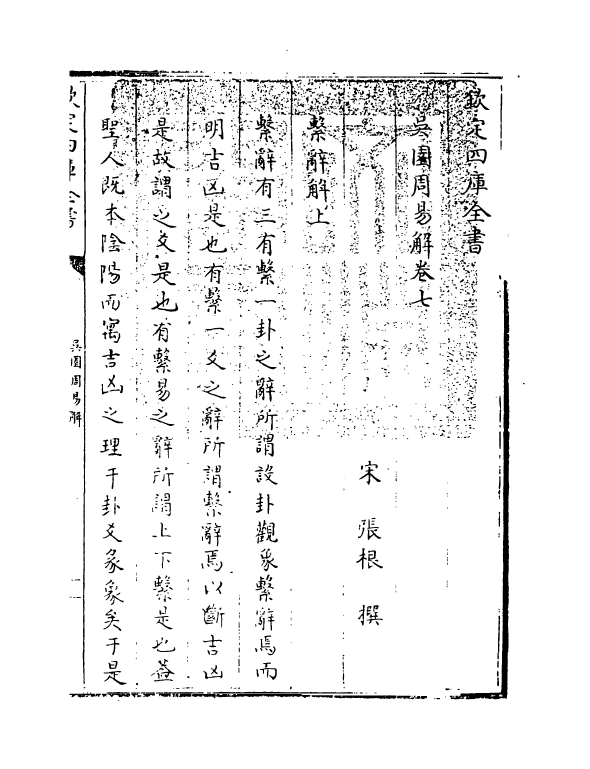 欽定四庫全書
吳園周易解卷七
宋　張根　撰
繫辭解上
繫辭有三有繫一卦之辭所謂設卦觀象繫辭焉而
明吉凶是也有繫一爻之辭所謂繫辭焉以斷吉凶
是故謂之爻是也有繫易之辭所謂上下繫是也蓋
聖人既本陰陽而寓吉凶之理于卦爻彖象矣于是
欽定四庫全書
吳園周易解